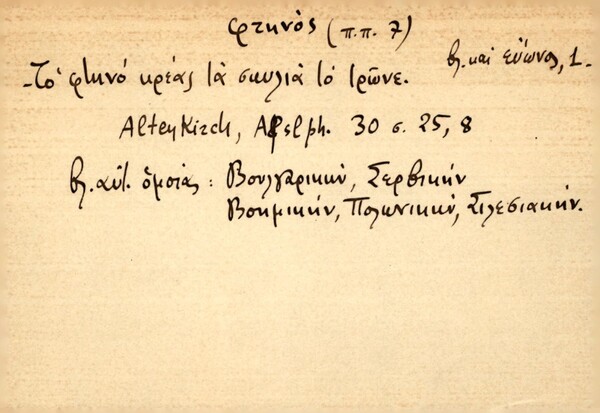 φτηνὸς (π.π. 7)
βλ. καὶ εὔωνος, 1.
- Τὸ φτηνό κρέας τὰ σκυλιὰ τὸ τρῶνε.
Altenkirch, A. f. sl. ph. 30 σ. 25, 8
βλ. αὐτ. ὁμοίας : Βουλγαρικὴν, Σερβικήν
Βοημικήν, Πολωνικὴν, Σιλεσιακήν.